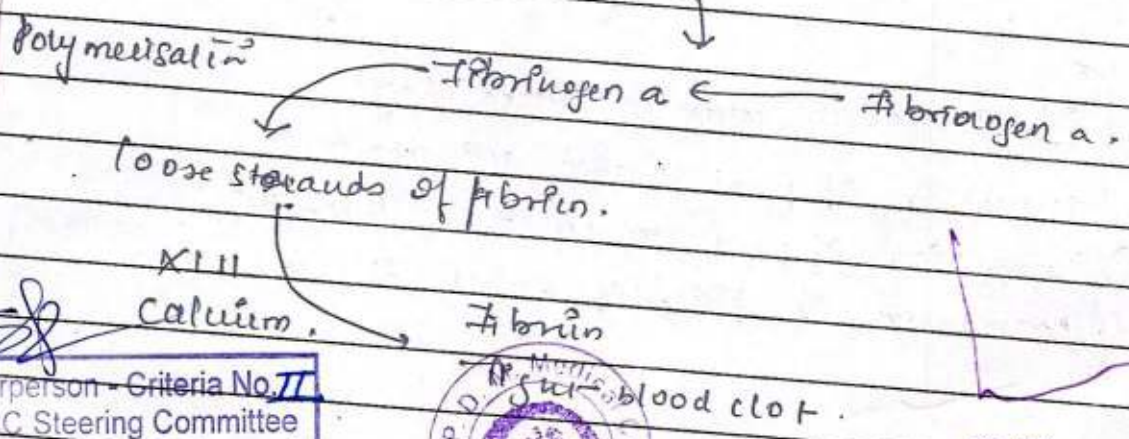 Polymerisatin
Fibrinogen a ← Fibrinogen a.
loose strands of fibrin.
XIII
Calcium.
Fibrin
blood clot.
rperson - Criteria No. II
C Steering Committee
P. D. Medical C